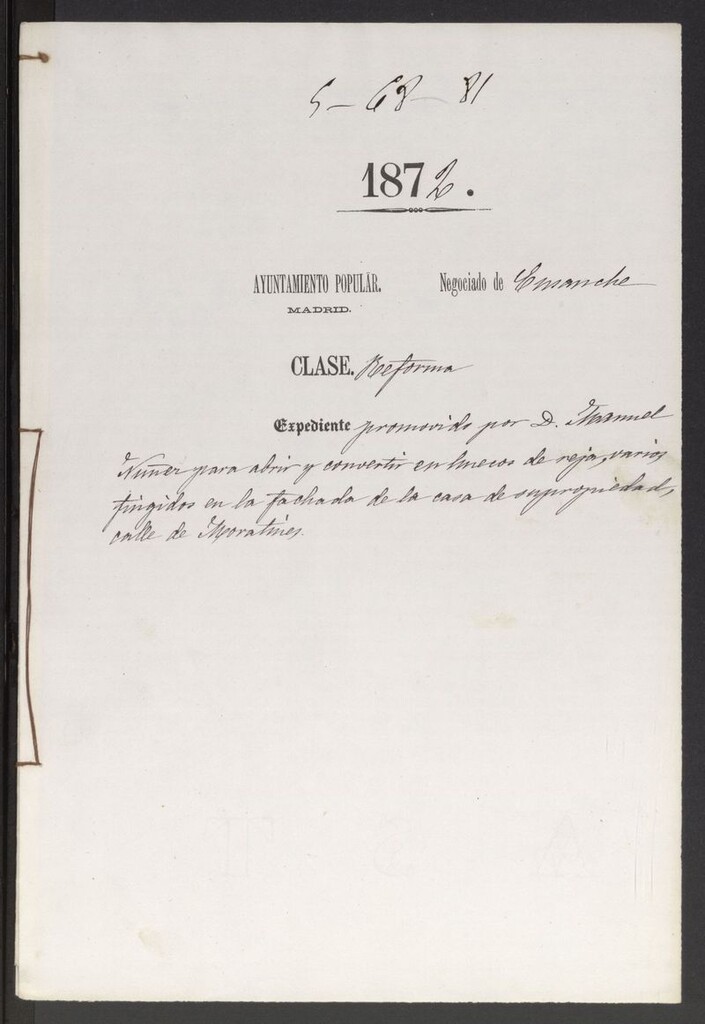 5-68-81
1872.
AYUNTAMIENTO POPULAR. Negociado de Ensanche
MADRID.
CLASE. Reforma
Expediente promovido por D. Manuel
Nuñez para abrir y convertir en huecos de reja, varios
fingidos en la fachada de la casa de su propiedad,
calle de Moratines.